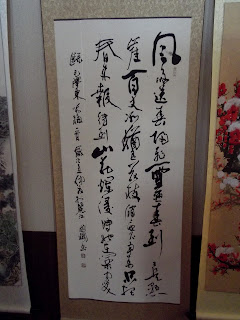 風雨送春歸飛雪迎春到已是懸
崖百丈冰猶有花枝俏俏也不爭春只把
春來報待到山花爛漫時她在叢中笑
錄毛澤東詠梅